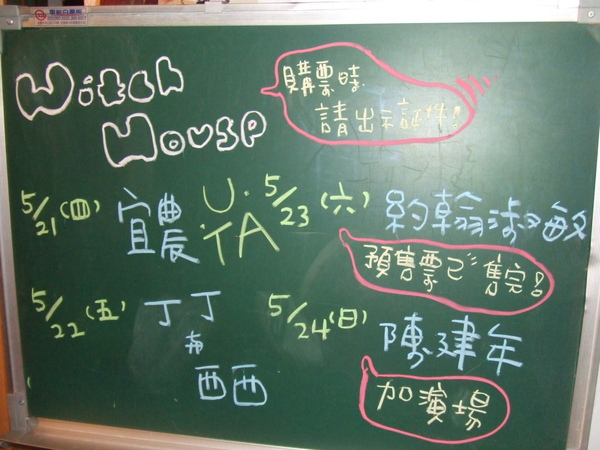 Witch
House
購票時
請出示証件!
5/21(四) 宜農 U.TA
5/23(六) 約翰淑敏
預售票已售完!
5/22(五) 丁丁
與
西西
5/24(日) 陳建年
加演場